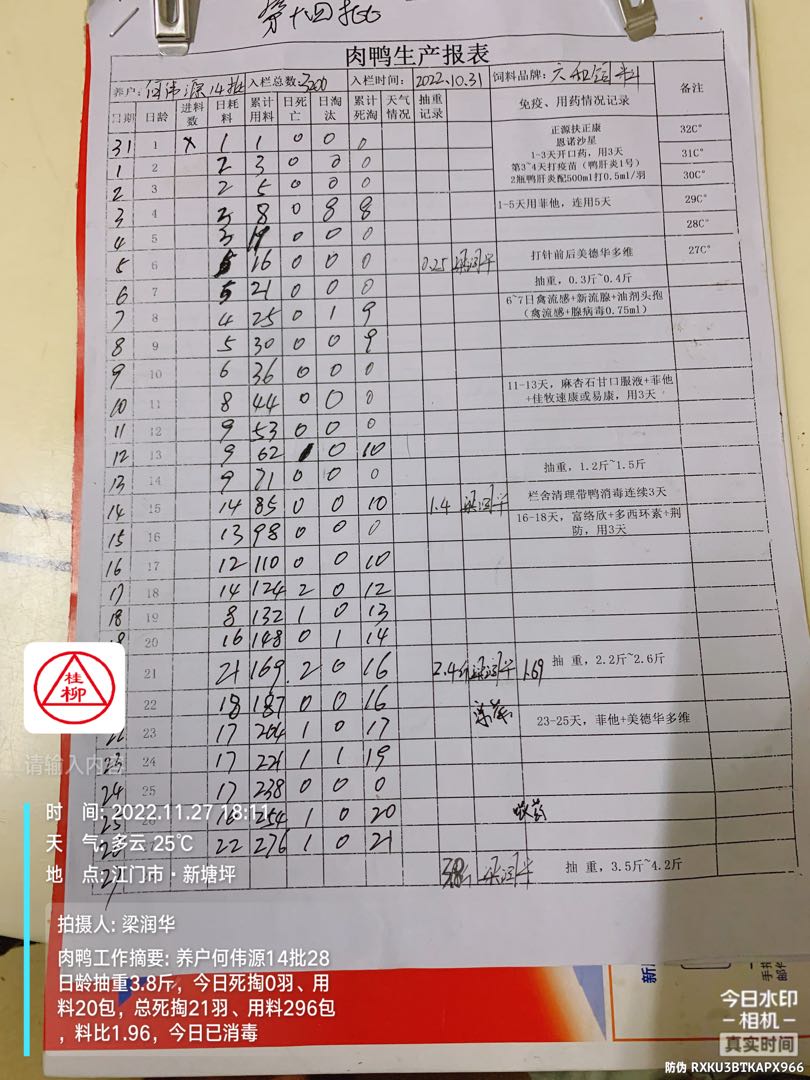 第十四批
肉鸭生产报表
养户: 何伟源14批 入栏总数: 3200 入栏时间: 2022.10.31 饲料品牌: 六和饲料 备注
日期 日龄 进料数 日耗料 累计用料 日死亡 日淘汰 累计死淘 天气情况 抽重记录 免疫、用药情况记录
31 1 X 1 1 0 0 0 正源扶正康 恩诺沙星 32C°
1 2 2 3 0 0 0 1-3天开口药，用3天 第3~4天打疫苗（鸭肝炎1号） 31C°
2 3 2 5 0 0 0 2瓶鸭肝炎配500ml打0.5ml/羽 30C°
3 4 3 8 0 8 8 1-5天用菲他，连用5天 29C°
4 5 3 0 0 0 28C°
5 6 5 16 0 0 0 0.25 梁润华 打针前后美德华多维 27C°
6 7 5 21 0 0 0 抽重，0.3斤~0.4斤
7 8 4 25 0 1 9 6~7日禽流感+新流腺+油剂头孢（禽流感+腺病毒0.75ml）
8 9 5 30 0 0 9
9 10 6 36 0 0 0
10 11 8 44 0 0 0 11-13天，麻杏石甘口服液+菲他+佳牧速康或易康，用3天
11 12 9 53 0 0 0
12 13 9 62 1 0 10
13 14 9 71 0 0 0 抽重，1.2斤~1.5斤
14 15 14 85 0 0 10 1.4 梁润华 栏舍清理带鸭消毒连续3天
15 16 13 98 0 0 0 16-18天，富络欣+多西环素+荆防，用3天
16 17 12 110 0 0 10
17 18 14 124 2 0 12
18 19 8 132 1 0 13
19 20 16 148 0 1 14
21 21 169 2 0 16 2.4斤 梁润华 1.69 抽 重，2.2斤~2.6斤
22 18 187 0 0 16
22 23 17 204 1 0 17 23-25天，菲他+美德华多维
23 24 17 221 1 1 19
24 25 17 238 0 0 0
25 26 16 254 1 0 20 收药
26 22 276 1 0 21
27 3.8斤 梁润华 抽 重，3.5斤~4.2斤
桂柳
请输入内容
时 间: 2022.11.27 18:11
天 气: 多云 25℃
地 点: 江门市·新塘坪
拍摄人: 梁润华
肉鸭工作摘要: 养户何伟源14批28
日龄抽重3.8斤，今日死掏0羽、用
料20包，总死掏21羽、用料296包
，料比1.96，今日已消毒
今日水印
相机
真实时间
防伪 RXKU3BTKAPX966